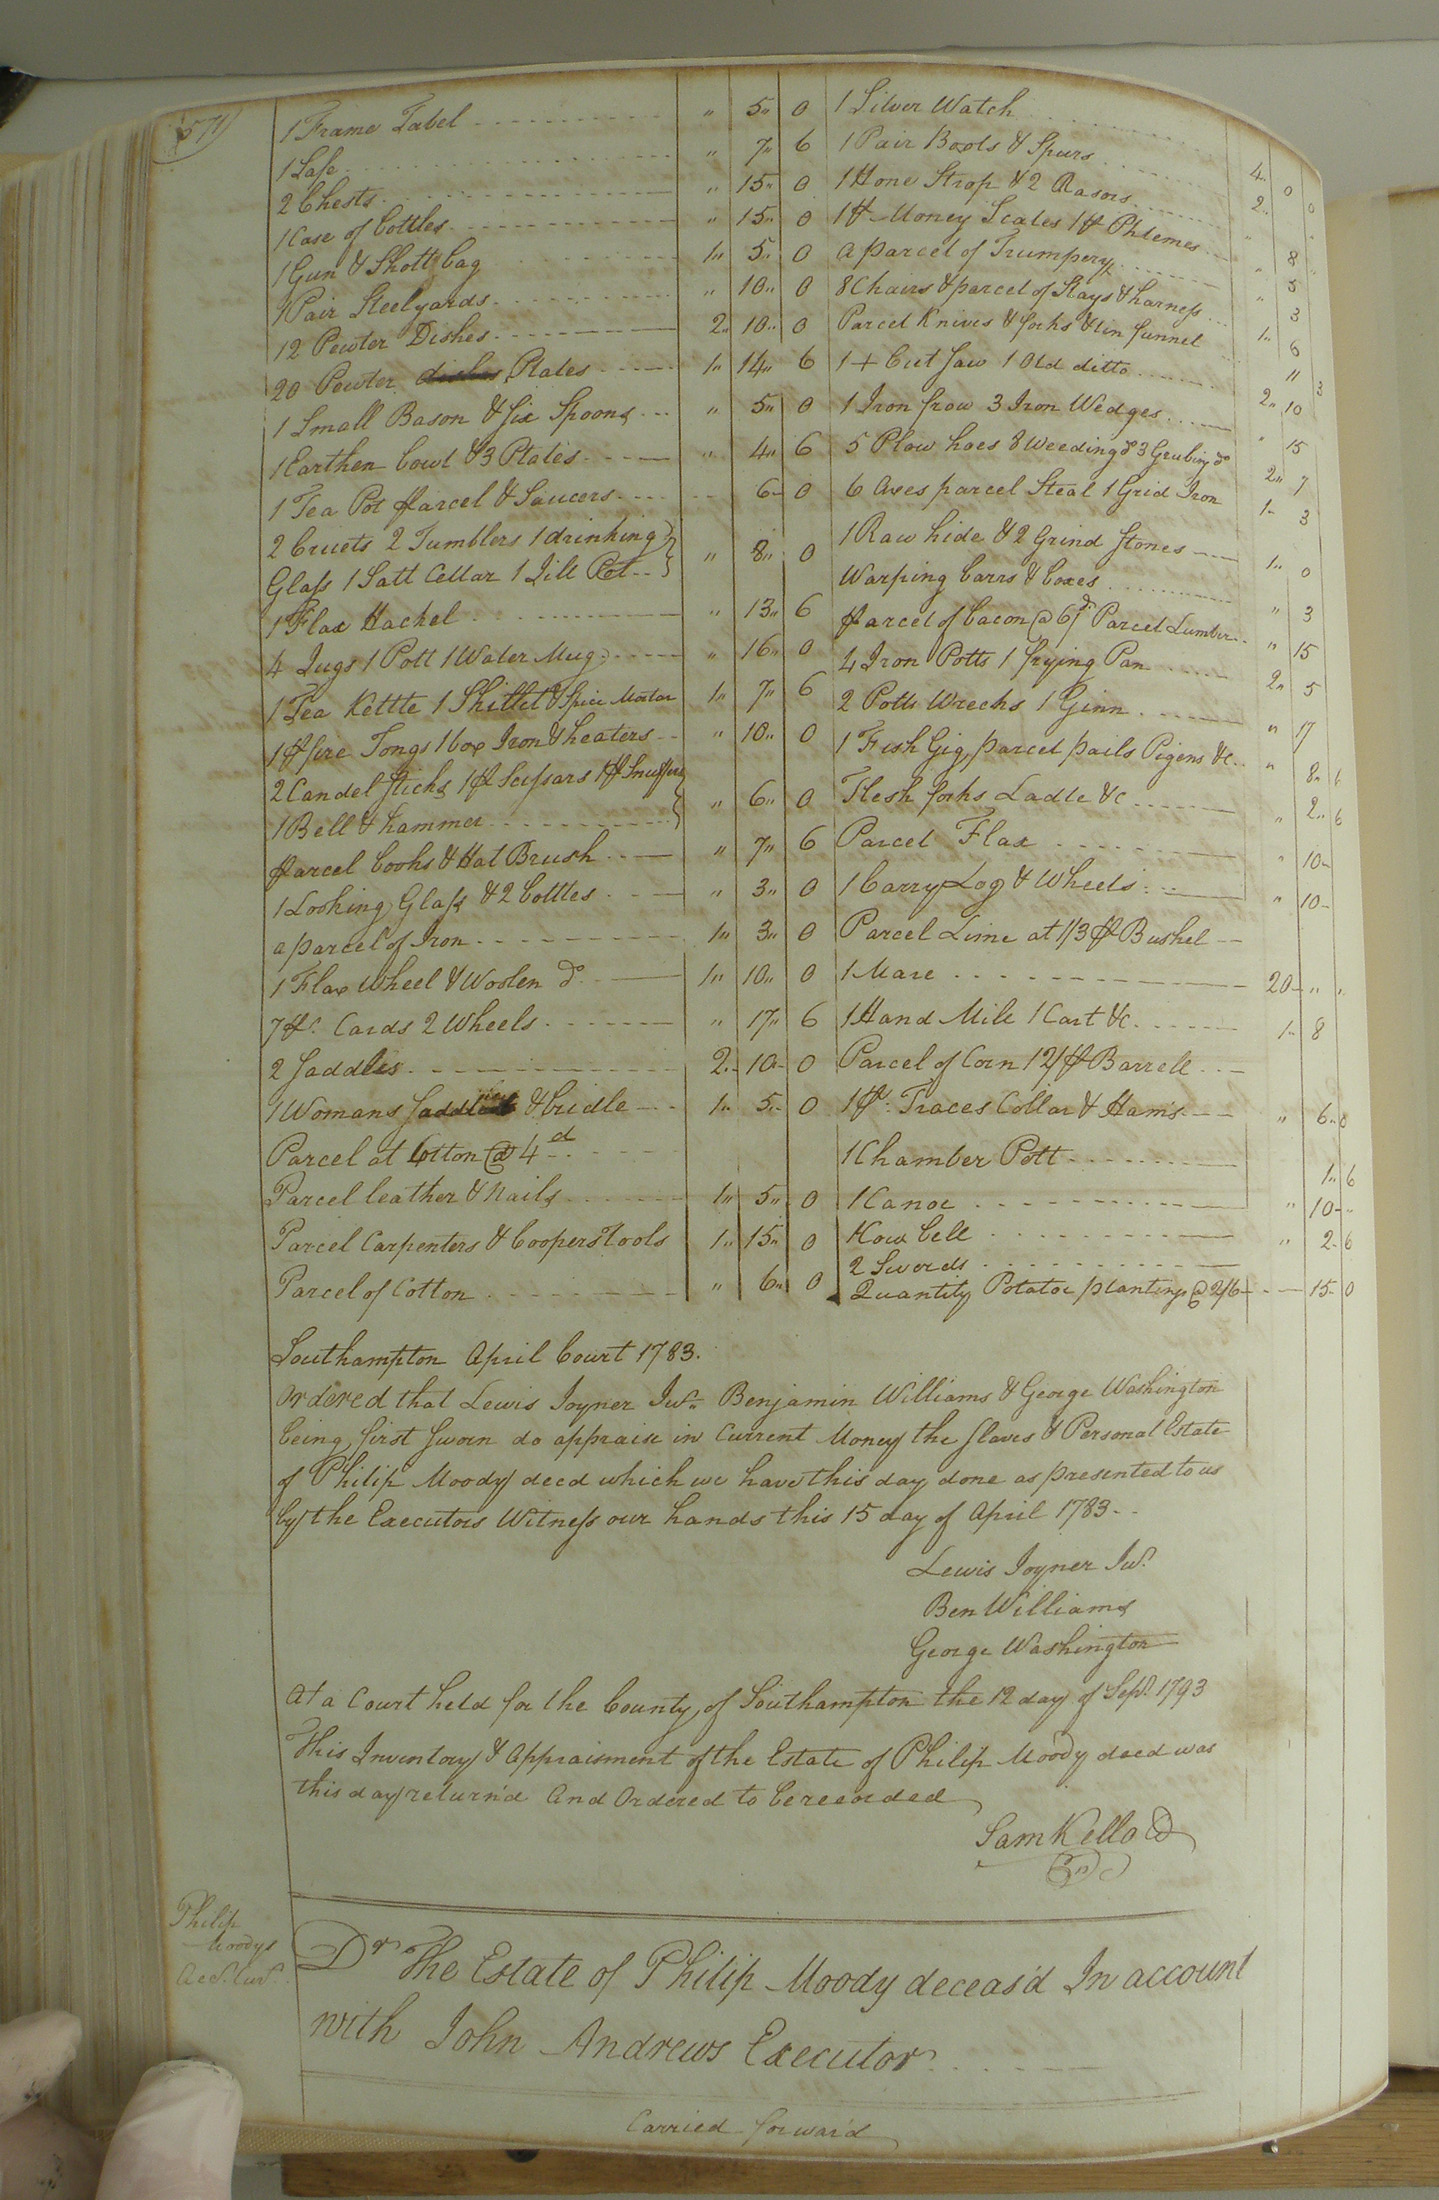 571
1 Frame Tabel " 5" 0
1 Safe " 7" 6
2 Chests " 15" 0
1 Case of bottles " 15" 0
1 Gun & Shott bag 1" 5" 0
1 Pair Steelyards " 10" 0
12 Pewter Dishes 2" 10" 0
20 Pewter dishes Plates 1" 14" 6
1 Small Bason & six Spoons " 5" 0
1 Earthen bowl & 3 Plates " 4" 6
1 Tea Pot Parcel & Saucers 6 0
2 Cruets 2 Tumblers 1 drinking
Glass 1 Salt Cellar 1 Jill Pot " 8" 0
1 Flax Hackel " 13" 6
4 Jugs 1 Pott 1 Water Mug " 16" 0
1 Tea Kettle 1 Skillet & Spice Mortar 1" 7" 6
1 pr fire Tongs 1 box Iron & heaters " 10" 0
2 Candel sticks 1 pr Scissars 1 pr Snuffers
1 Bell & hammer " 6" 0
Parcel books & Hat Brush " 7" 6
1 Looking Glass & 2 bottles " 3" 0
a parcel of Iron 1" 3" 0
1 Flax Wheel & Woolen do 1" 10" 0
7 pr. Cards 2 Wheels " 17" 6
2 Saddles 2" 10 0
1 Womans Saddle & bridle 1" 5" 0
Parcel at Cotton @ 4d
Parcel leather & Nails 1" 5" 0
Parcel Carpenters & Coopers Tools 1" 15" 0
Parcel of Cotton " 6" 0
1 Silver Watch 4" 0 0
1 Pair Boots & Spurs 2"
1 Hone Strop & 2 Rasors " 8
1 pr Money Scales 1 pr Phlemes " 5
a parcel of Trumpery " 3
8 Chairs & parcel of Slays & harness 1" 6
Parcel Knives & forks & tin funnel 11 3
1 + Cut Saw 1 Old ditto 2" 10
1 Iron frow 3 Iron Wedges " 15
5 Plow hoes 8 Weeding do 3 Grubing do 2" 7
6 Axes parcel Steal 1 Grid Iron 1 3
1 Raw hide & 2 Grind Stones 1" 0
Warping barrs & boxes " 3
Parcel of bacon @ 6d Parcel Lumber " 15
4 Iron Potts 1 frying Pan 2" 5
2 Potts Wrecks 1 Ginn " 17
1 Fish Gig, parcel pails Pigens &c " 8" 6
Flesh forks Ladle &c " 2" 6
Parcel Flax " 10
1 Carry Log & Wheels " 10
Parcel Lime at 1/3 pr Bushel
1 Mare 20 " "
1 Hand Mill 1 Cart &c 1" 8
Parcel of Corn 12/ pr Barrell
1 pr. Traces Collar & Hams " 6" 0
1 Chamber Pott 1" 6
1 Canoe " 10 "
1 Cow bell " 2" 6
2 Swords
Quantity Potatoe plantings @ 2/6 15 0
Southampton April Court 1783.
Ordered that Lewis Joyner Junr. Benjamin Williams & George Washington
being first Sworn do appraise in Current Money the Slaves & Personal Estate
of Philip Moody decd which we have this day done as presented to us
by the Executors Witness our hands this 15 day of April 1783
Lewis Joyner Jur.
Ben Williams
George Washington
At a Court held for the County of Southampton the 12 day of Sept. 1793
This Inventory & Appraisment of the Estate of Philip Moody decd was
this day return'd And Ordered to be recorded
Sam Kello
Philip
Moodys
Acct. Curt.
Dr The Estate of Philip Moody deceas'd In account
with John Andrews Executor
Carried forward